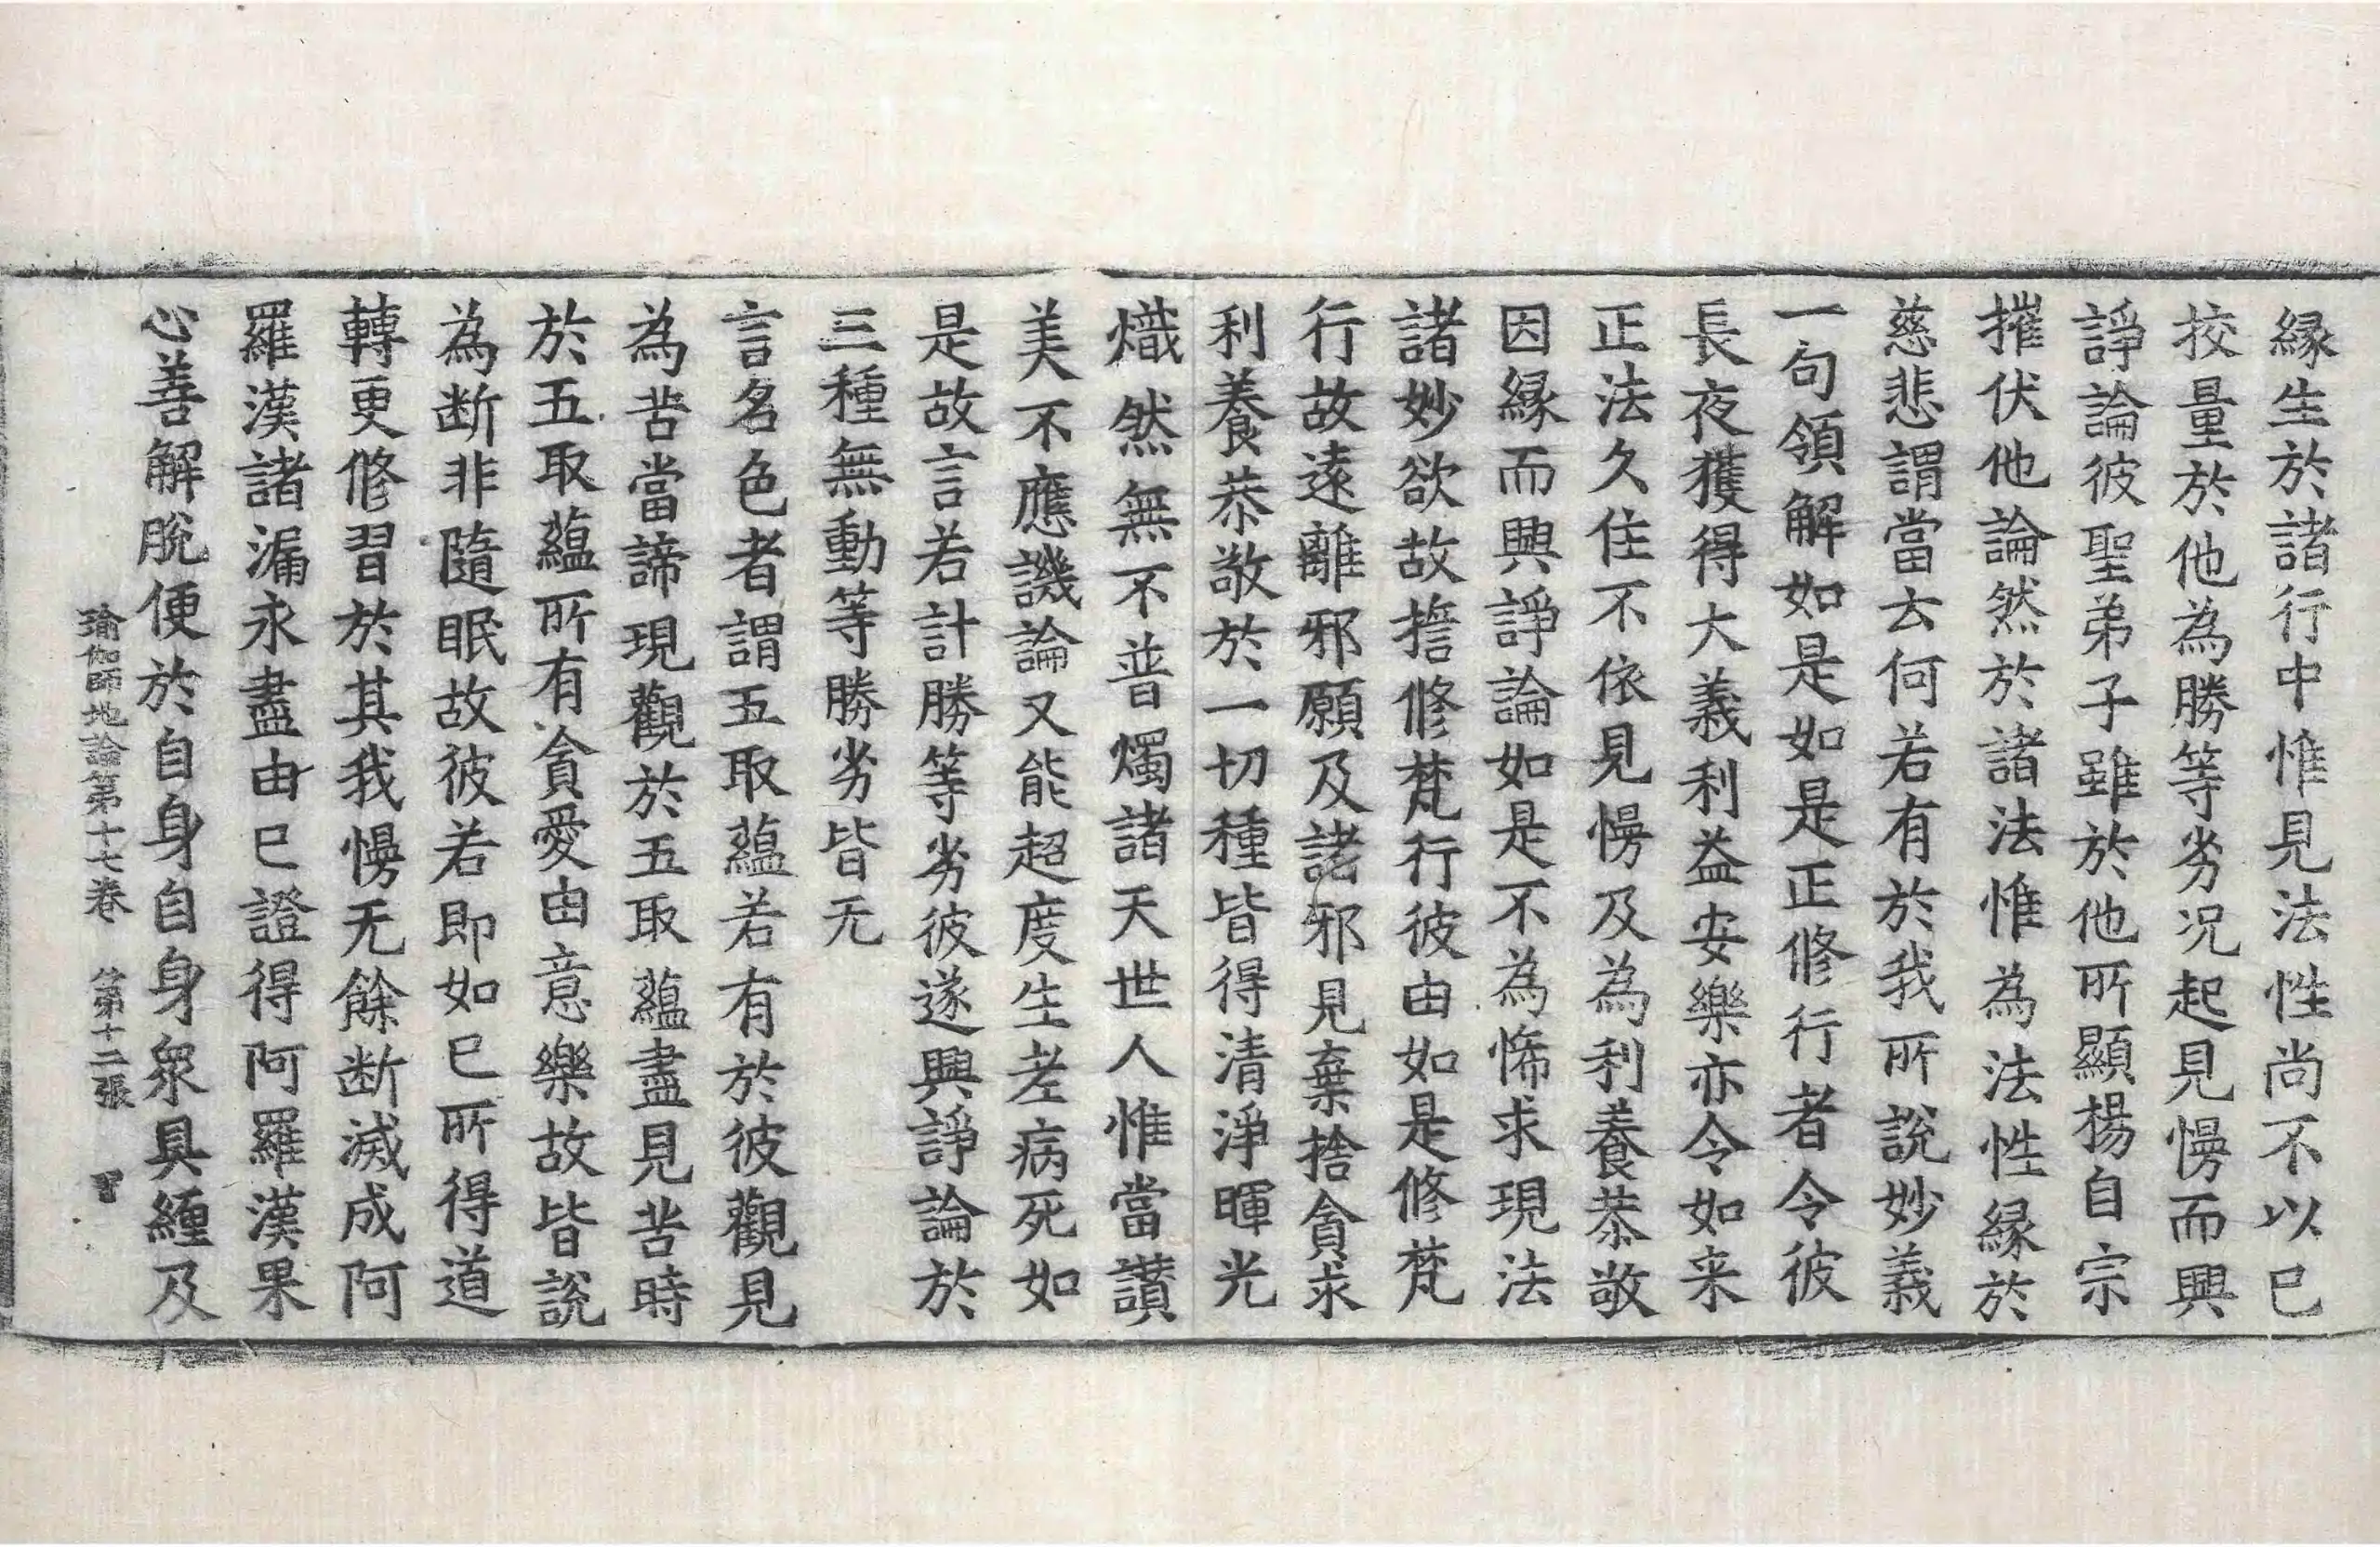 縁生於諸行中惟見法性尚不以巳
挍量於他為勝等劣况起見慢而興
諍論彼聖弟子雖於他所顯揚自宗
摧伏他論然於諸法惟為法性縁於
慈悲謂當云何若有於我所說妙義
一句領解如是如是正修行者令彼
長夜獲得大義利益安樂亦令如来
正法久住不依見慢及為利養恭敬
因縁而興諍論如是不為悕求現法
諸妙欲故擔修梵行彼由如是修梵
行故遠離邪願及諸邪見棄捨貪求
利養恭敬於一切種皆得清淨暉光
熾然無不普燭諸天世人惟當讃
美不應譏論又能超度生老病死如
是故言若計勝等劣彼遂興諍論於
三種無動等勝劣皆无
言名色者謂五取蘊若有於彼觀見
為苦當諦現觀於五取蘊盡見苦時
於五取蘊所有貪愛由意樂故皆說
為断非隨眠故彼若即如巳所得道
轉更修習於其我慢无餘断滅成阿
羅漢諸漏永盡由巳證得阿羅漢果
心善解脫便於自身自身衆具纒及
瑜伽師地論第十七卷　第十二張